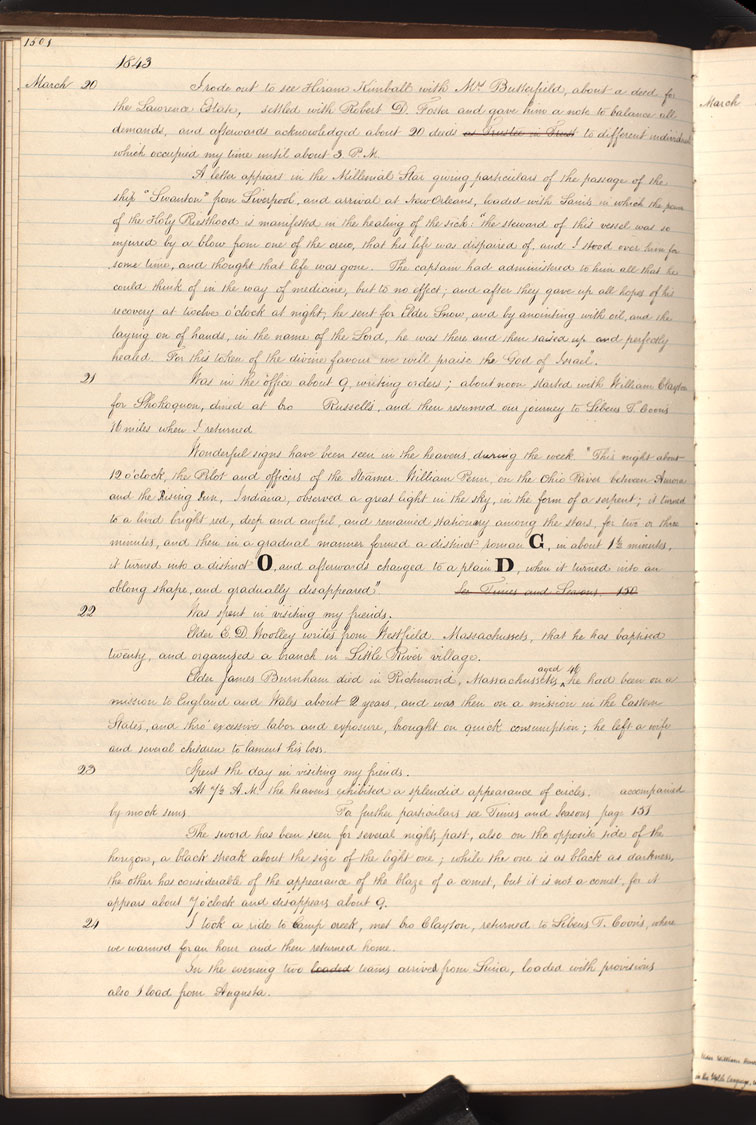 1501
1843
March 20 I rode out to see Hiram Kimball with Mrs Butterfield, about a deed for
the Lawrence Estate, settled with Robert D. Foster and gave him a note to balance all
demands, and afterwards acknowledged about 20 deeds as Trustee in Trust to different individuals
which occupied my time until about 3. P.M.
A letter appears in the Millenial Star giving particulars of the passage of the
ship "Swanton" from Liverpool, and arrival at New Orleans, loaded with Saints in which the power
of the Holy Priesthood is manifested in the healing of the sick: "the steward of this vessel was so
injured by a blow from one of the crew, that his life was dispaired of, and I stood over him for
some time, and thought that life was gone. The captain had administered to him all that he
could think of in the way of medicine, but to no effect; and after they gave up all hopes of his
recovery at twelve o'clock at night, he sent for Elder Snow, and by anointing with oil, and the
laying on of hands, in the name of the Lord, he was then and then raised up and perfectly
healed. For this token of the divine favour we will praise the God of Israel".
21 Was in the office about 9, writing orders; about noon started with William Clayton
for Shokoquon, dined at bro Russell's, and then resumed our journey to Libeus T. Coon's
16 miles when I returned
Wonderful signs have been seen in the heavens during the week "This night about
12 o'clock, the Pilot and officers of the Steamer William Penn, on the Ohio River between Aurora
and the Rising Sun, Indiana, observed a great light in the sky, in the form of a serpent; it turned
to a livid bright red, deep and awful, and remained stationary among the stars, for two or three
minutes, and then in a gradual manner formed a distinct roman G, in about 1½ minutes,
it turned into a distinct O, and afterwards changed to a plain D, when it turned into an
oblong shape, and gradually disappeared". See Times and Seasons, 150
22 Was spent in visiting my friends.
Elder E. D. Woolley writes from Westfield Massachussets, that he has baptised
twenty, and organized a branch in Little River village.
aged 46
Elder James Burnham died in Richmond, Massachussetts, he had been on a
mission to England and Wales about 2 years, and was then on a mission in the Eastern
States, and thro' excessive labor and exposure, brought on quick consumption; he left a wife
and several children to lament his loss.
23 Spent the day in visiting my friends.
At 7½ A.M. the heavens exhibited a splendid appearance of circles. accompanied
by mock suns For further particulars see Times and Seasons page 151
The sword has been seen for several nights past, also on the opposite side of the
horizon, a black streak about the size of the light one; while the one is as black as darkness,
the other has considerable of the appearance of the blaze of a comet, but it is not a comet, for it
appears about 7 o'clock and disappears about 9.
24 I took a ride to Camp creek, met bro Clayton, returned to Libeus T. Coon's, where
we warmed for an hour and then returned home.
In the evening two loaded teams arrived from Lima, loaded with provisions
also 1 load from Augusta.
March
in the Welsh Language,